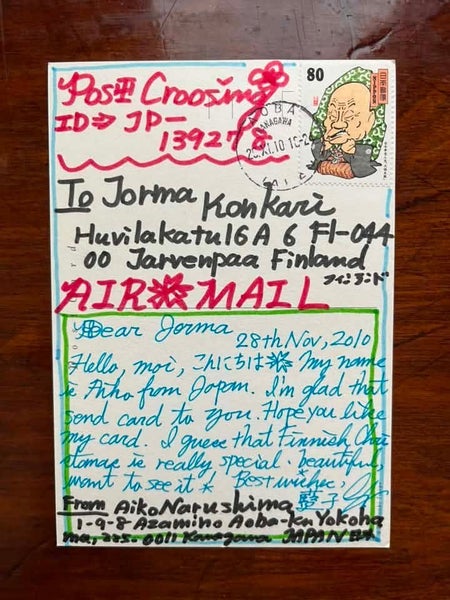 Post Croosing
ID⇒JP-
139278
80
日本郵便
NIPPON
AOBA
KANAGAWA
To Jorma Konkari
Huvilakatu 16 A 6 FI-044
00 Jarvenpaa Finland
フィンランド
AIR MAIL
Dear Jorma
28th Nov, 2010
Hello, moi, こんにちは My name
is Aiko from Japan. I'm glad that
send card to you. Hope you like
my card. I guess that Finnish Chri
stmas is really special. beautiful,
want to see it! Best wishes,
藍子
From Aiko Narushima
1-9-8 Azamino Aoba-ku Yokoha
ma, 225-0011 Kanagawa JAPAN 日本